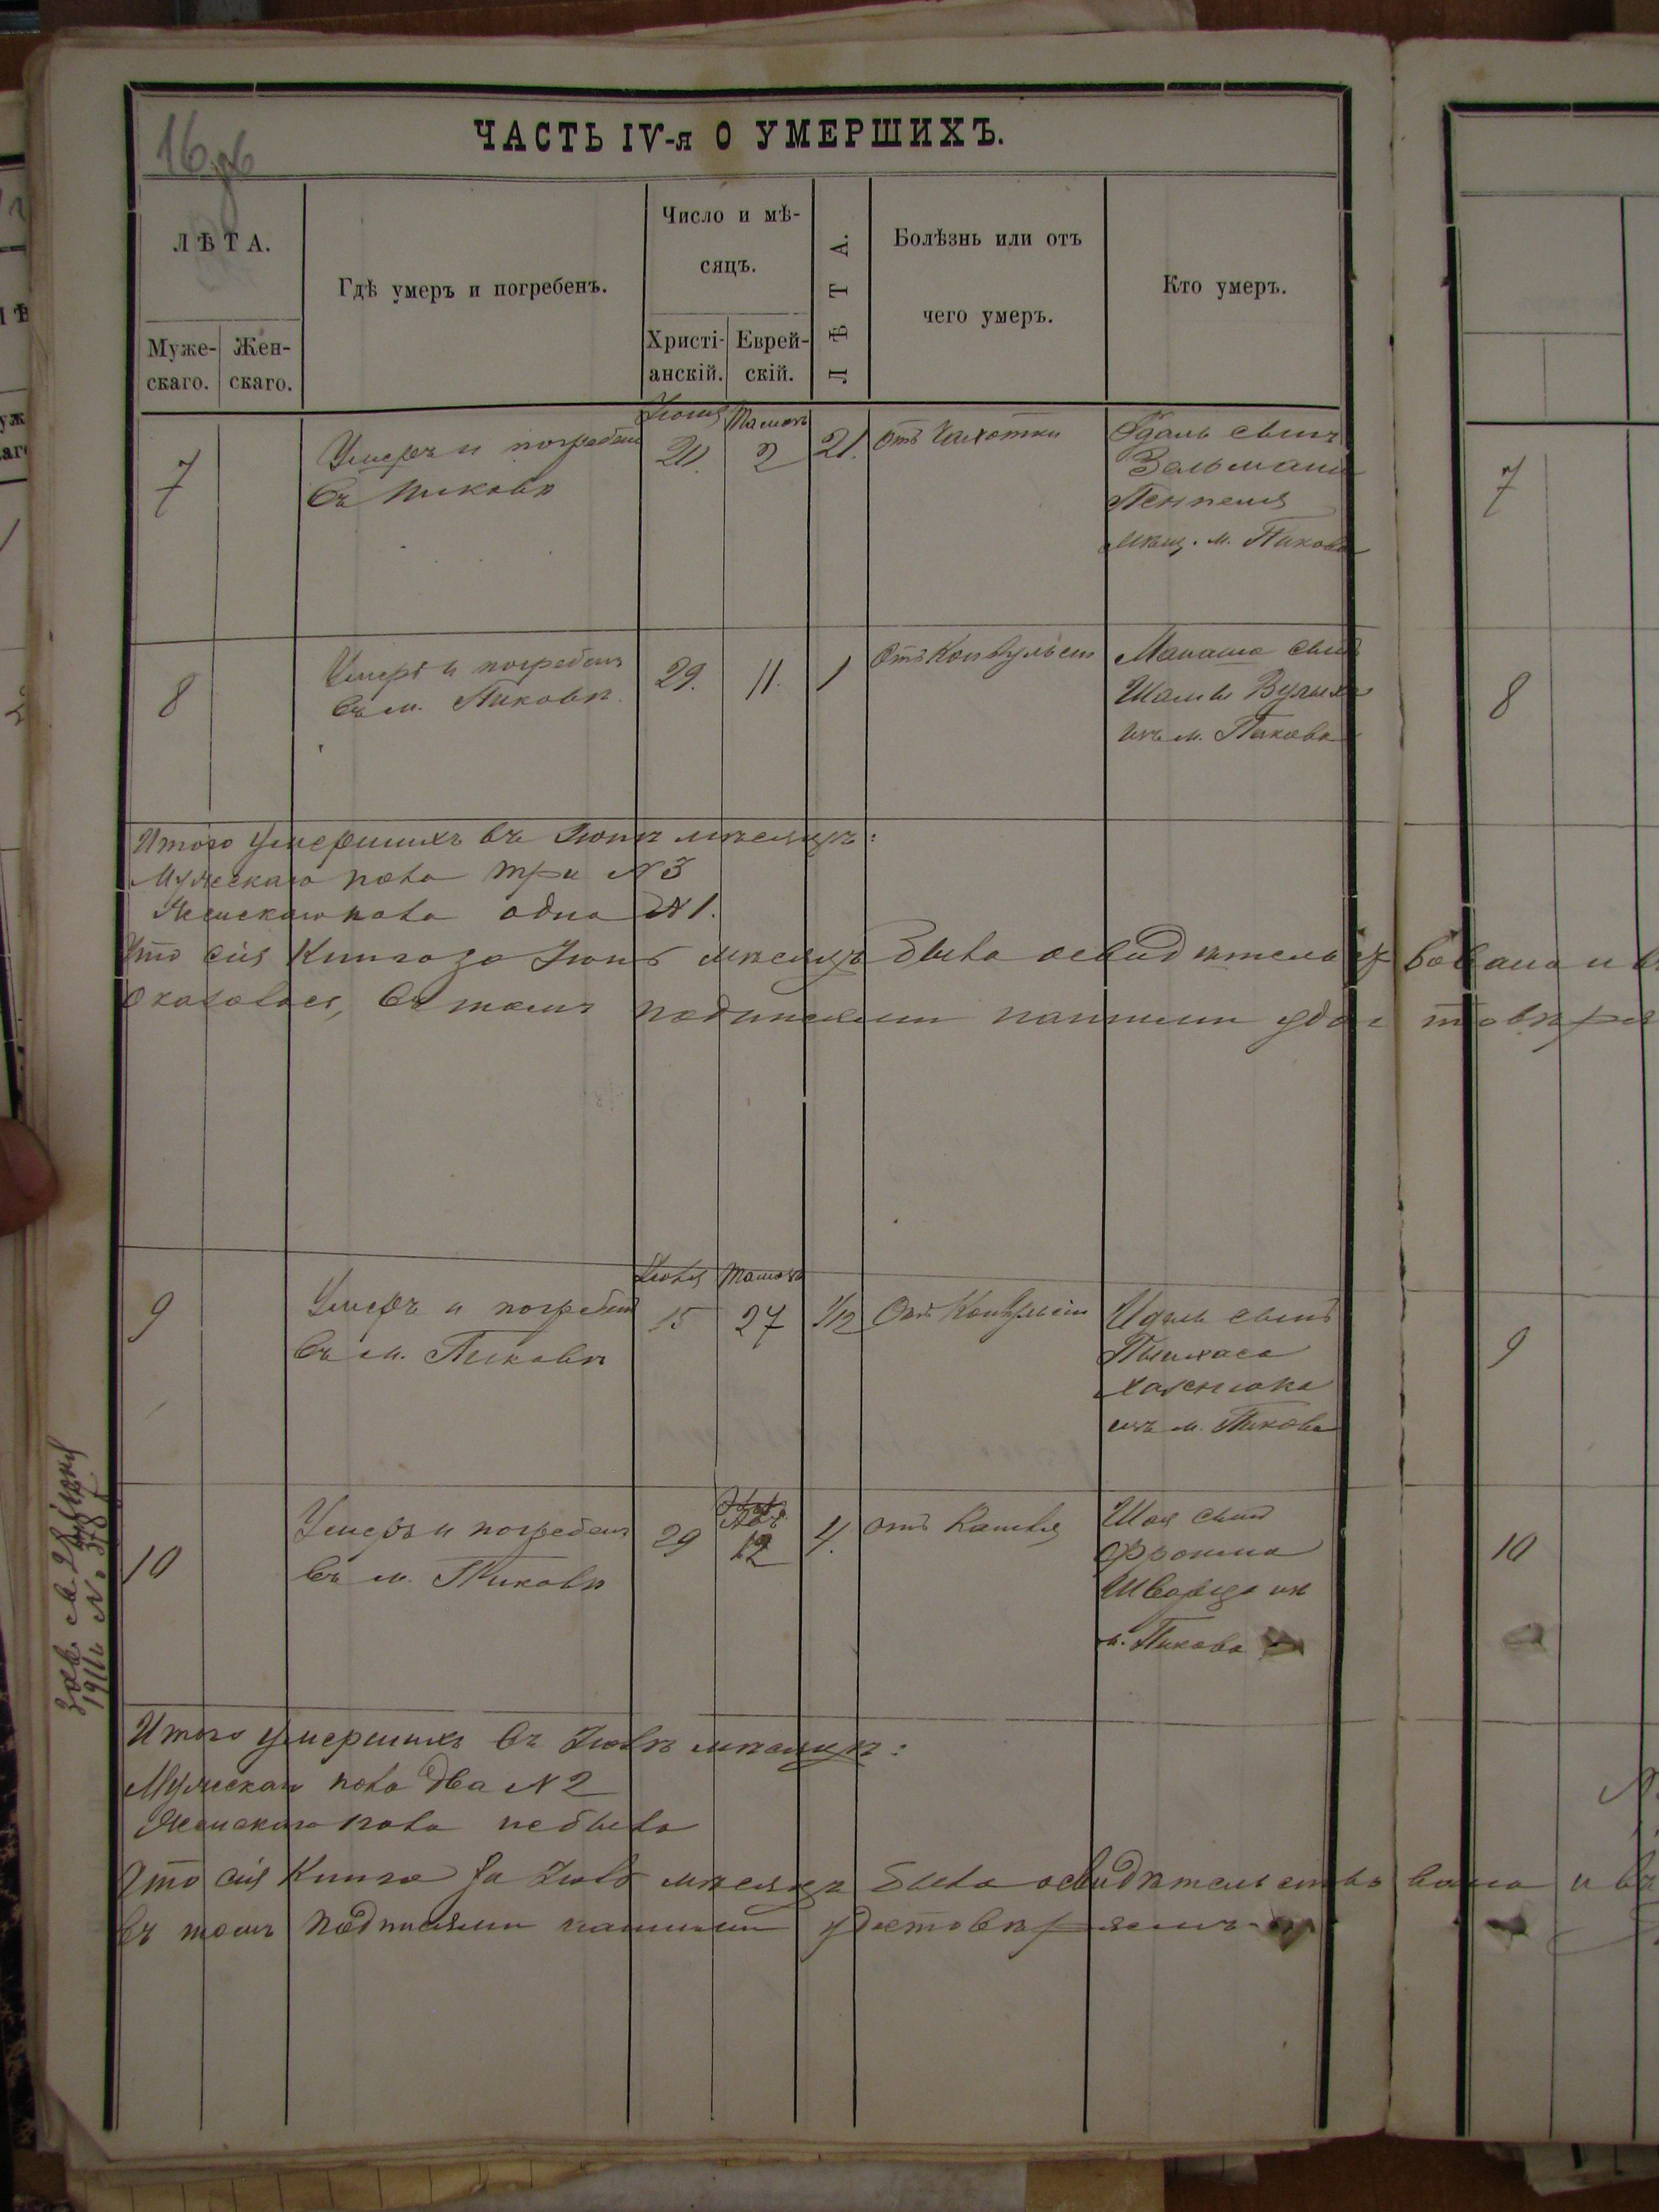 ЧАСТЬ IV-я О УМЕРШИХЪ.
16 об
ЛѢТА.
Муже-
скаго.
Жен-
скаго.
Гдѣ умеръ и погребенъ.
Число и мѣ-
сяцъ.
Христі-
анскій.
Еврей-
скій.
ЛѢТА.
Болѣзнь или отъ
чего умеръ.
Кто умеръ.
7
Умеръ и погребенъ
въ Пиковѣ
Іюня
Тамозъ
2
21.
отъ Чахотки
сынъ
Зельмана
мѣщ. м. Пикова
7
8
Умеръ и погребенъ
въ м. Пиковѣ.
29.
11.
1
отъ Конвульсіи
Манаша сынъ
из м. Пикова
8
Итого умершихъ въ Іюнѣ мѣсяцѣ:
Мужескаго пола три № 3
Женскаго пола одна № 1.
Что сія Книга за Іюнь мѣсяцъ была освидѣтельствована и в
оказалась, въ томъ подписями нашими удостовѣря
9
Умеръ и погребенъ
въ м. Пиковѣ
Іюля
Тамозъ
15
27
1/12
Отъ Конвульсіи
Идель сынъ
изъ м. Пикова
9
10
Умеръ и погребенъ
въ м. Пиковѣ
29
Авъ
12
4.
отъ Кашля
Шая сынъ
Фроима
Шварца из
м. Пикова
10
Итого умершихъ въ Іюлѣ мѣсяцѣ:
Мужескаго пола два № 2
Женскаго пола небыло
Что сія Книга за Іюль мѣсяцъ была освидѣтельствована и въ
въ томъ подписями нашими удостовѣряемъ
1911 №